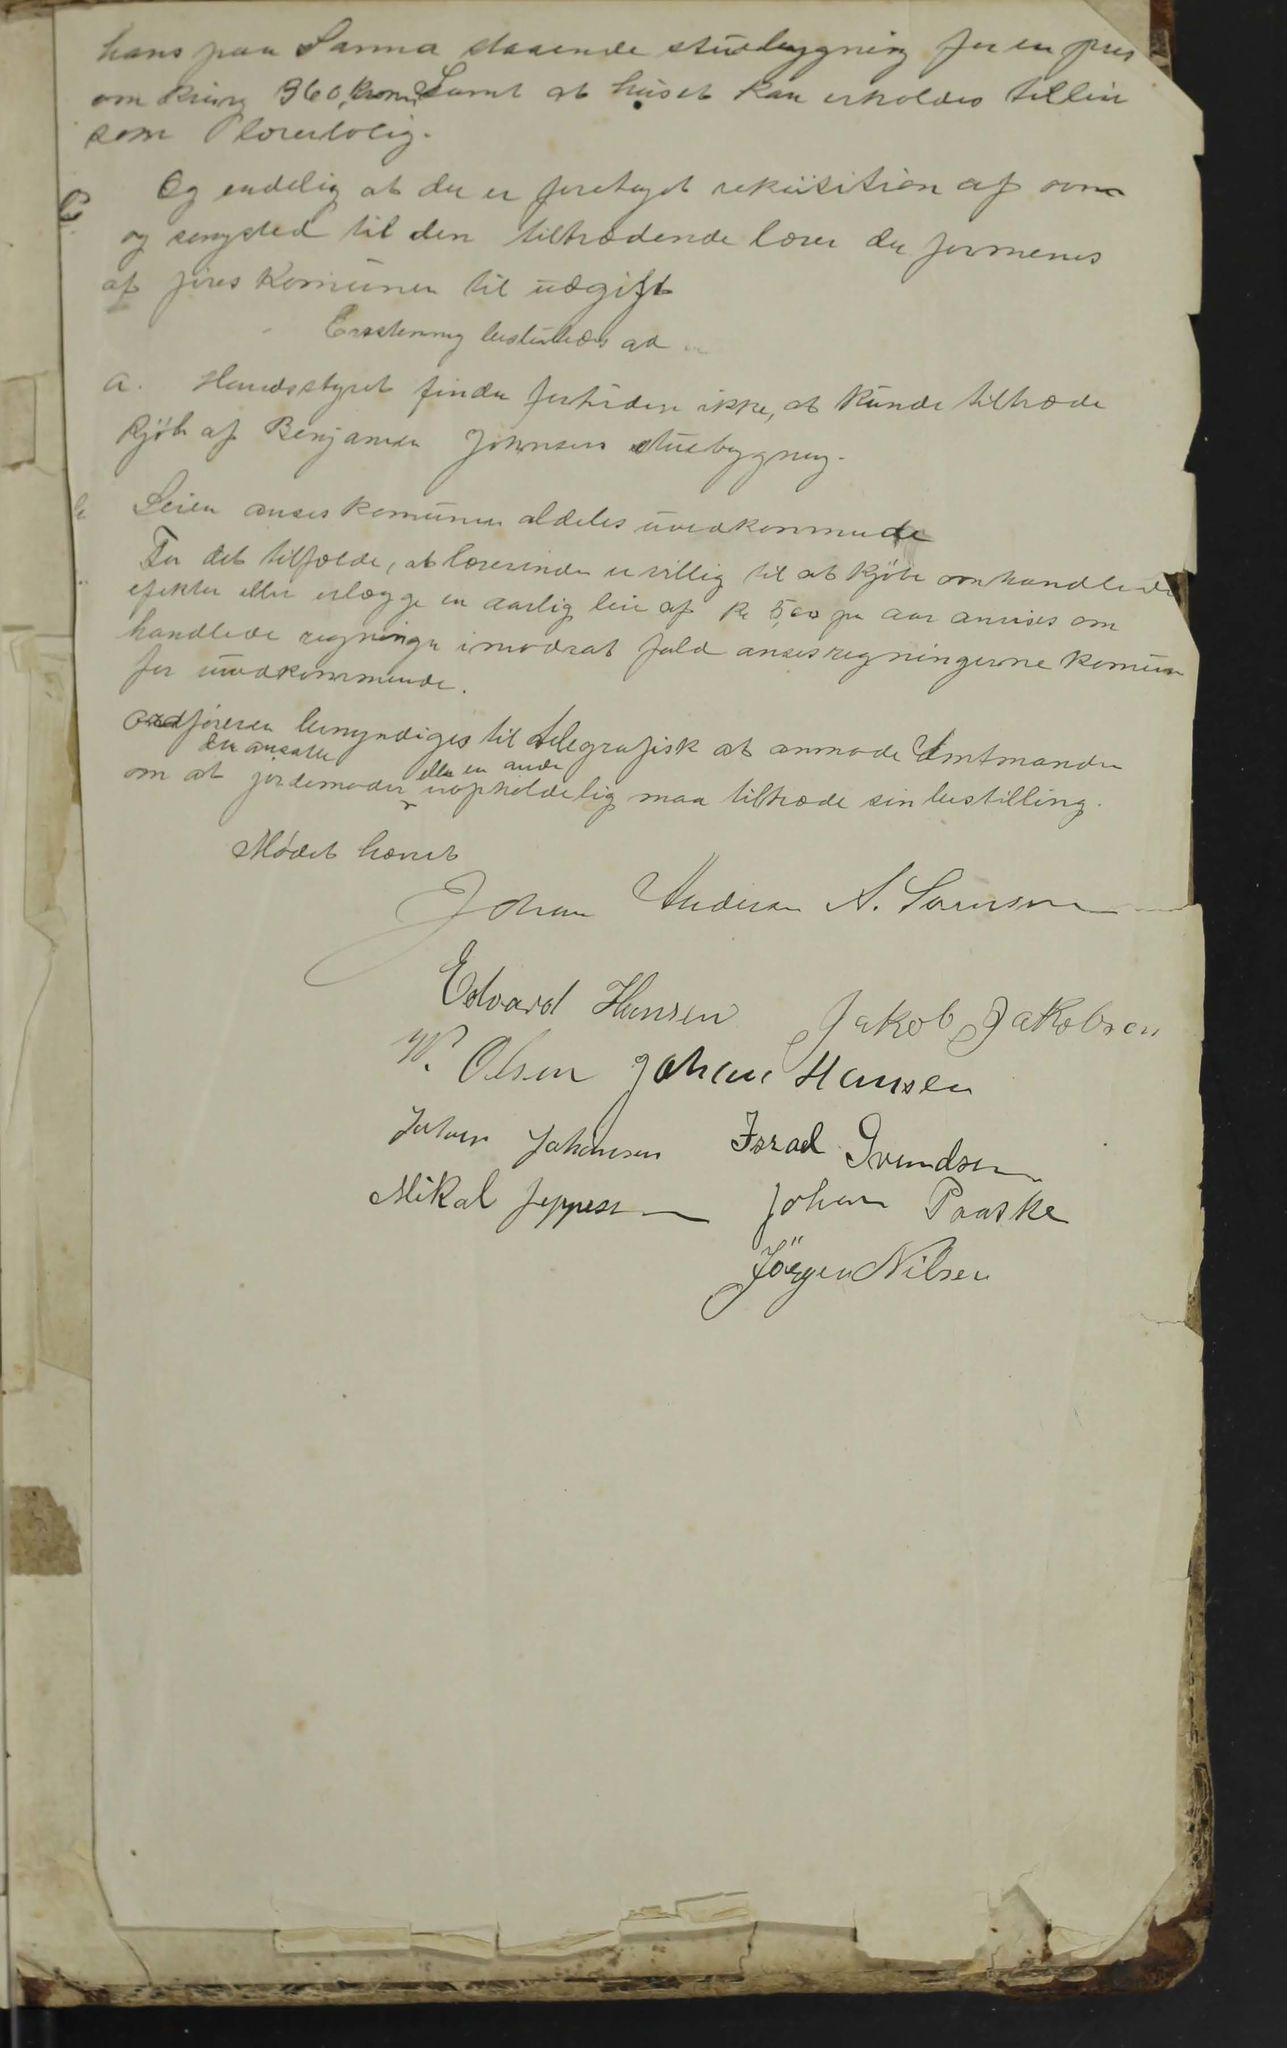 hans paa Sanna staaende stuebygning for en pris
om kring 360, kroner, Samt at huset kan erholdes tilleie
som lærerbolig.
C. Og endelig at der er foretaget rekvisition af ovn
og sengsted til den tiltrædende lærer der formenes
at føres komunen til udgift
besluttedes
a. Herredsstyret finder fortiden ikke, at kunde tiltræde
Kjøb af Benjamin Johnsens stuebygning.
b Leien anses komunen aldeles uvedkommende
For det tilfælde, at lærerinden er villig til at kjøbe omhandlede
efekter eller erlægge en aarlig leie af kr 5,00 pr aar anvises om
handlede regninger imodsat fald anses regningerne komunen
for uvedkommende.
Ordføreren bemyndiges til telegrafisk at anmode Amtmanden
den ansatte eller en anden
om at jordemoder uopholdelig maa tiltræde sin bestilling.
Mødet hævet
Johan Andersen A. Sørensen
Edvard Hansen Jakob Jakobsen
W. Olsen Johan Hansen
Johan Johansen Israel Svendsen
Mikal Jeppesen Johan Paaske
Jörgen Nilsen